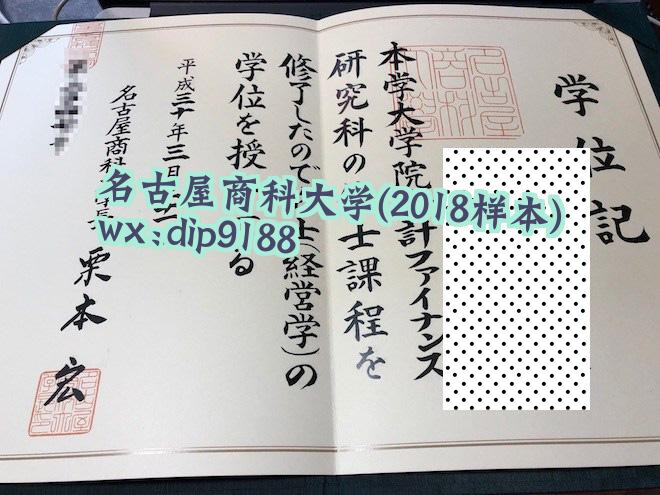 学位記
本学大学院計ファイナンス
研究科の士課程を
修了したので士(経営学)の
学位を授る
平成三十年三
名古屋商科長 栗本 宏
名古屋商科大学(2018样本)
wx:dip9188